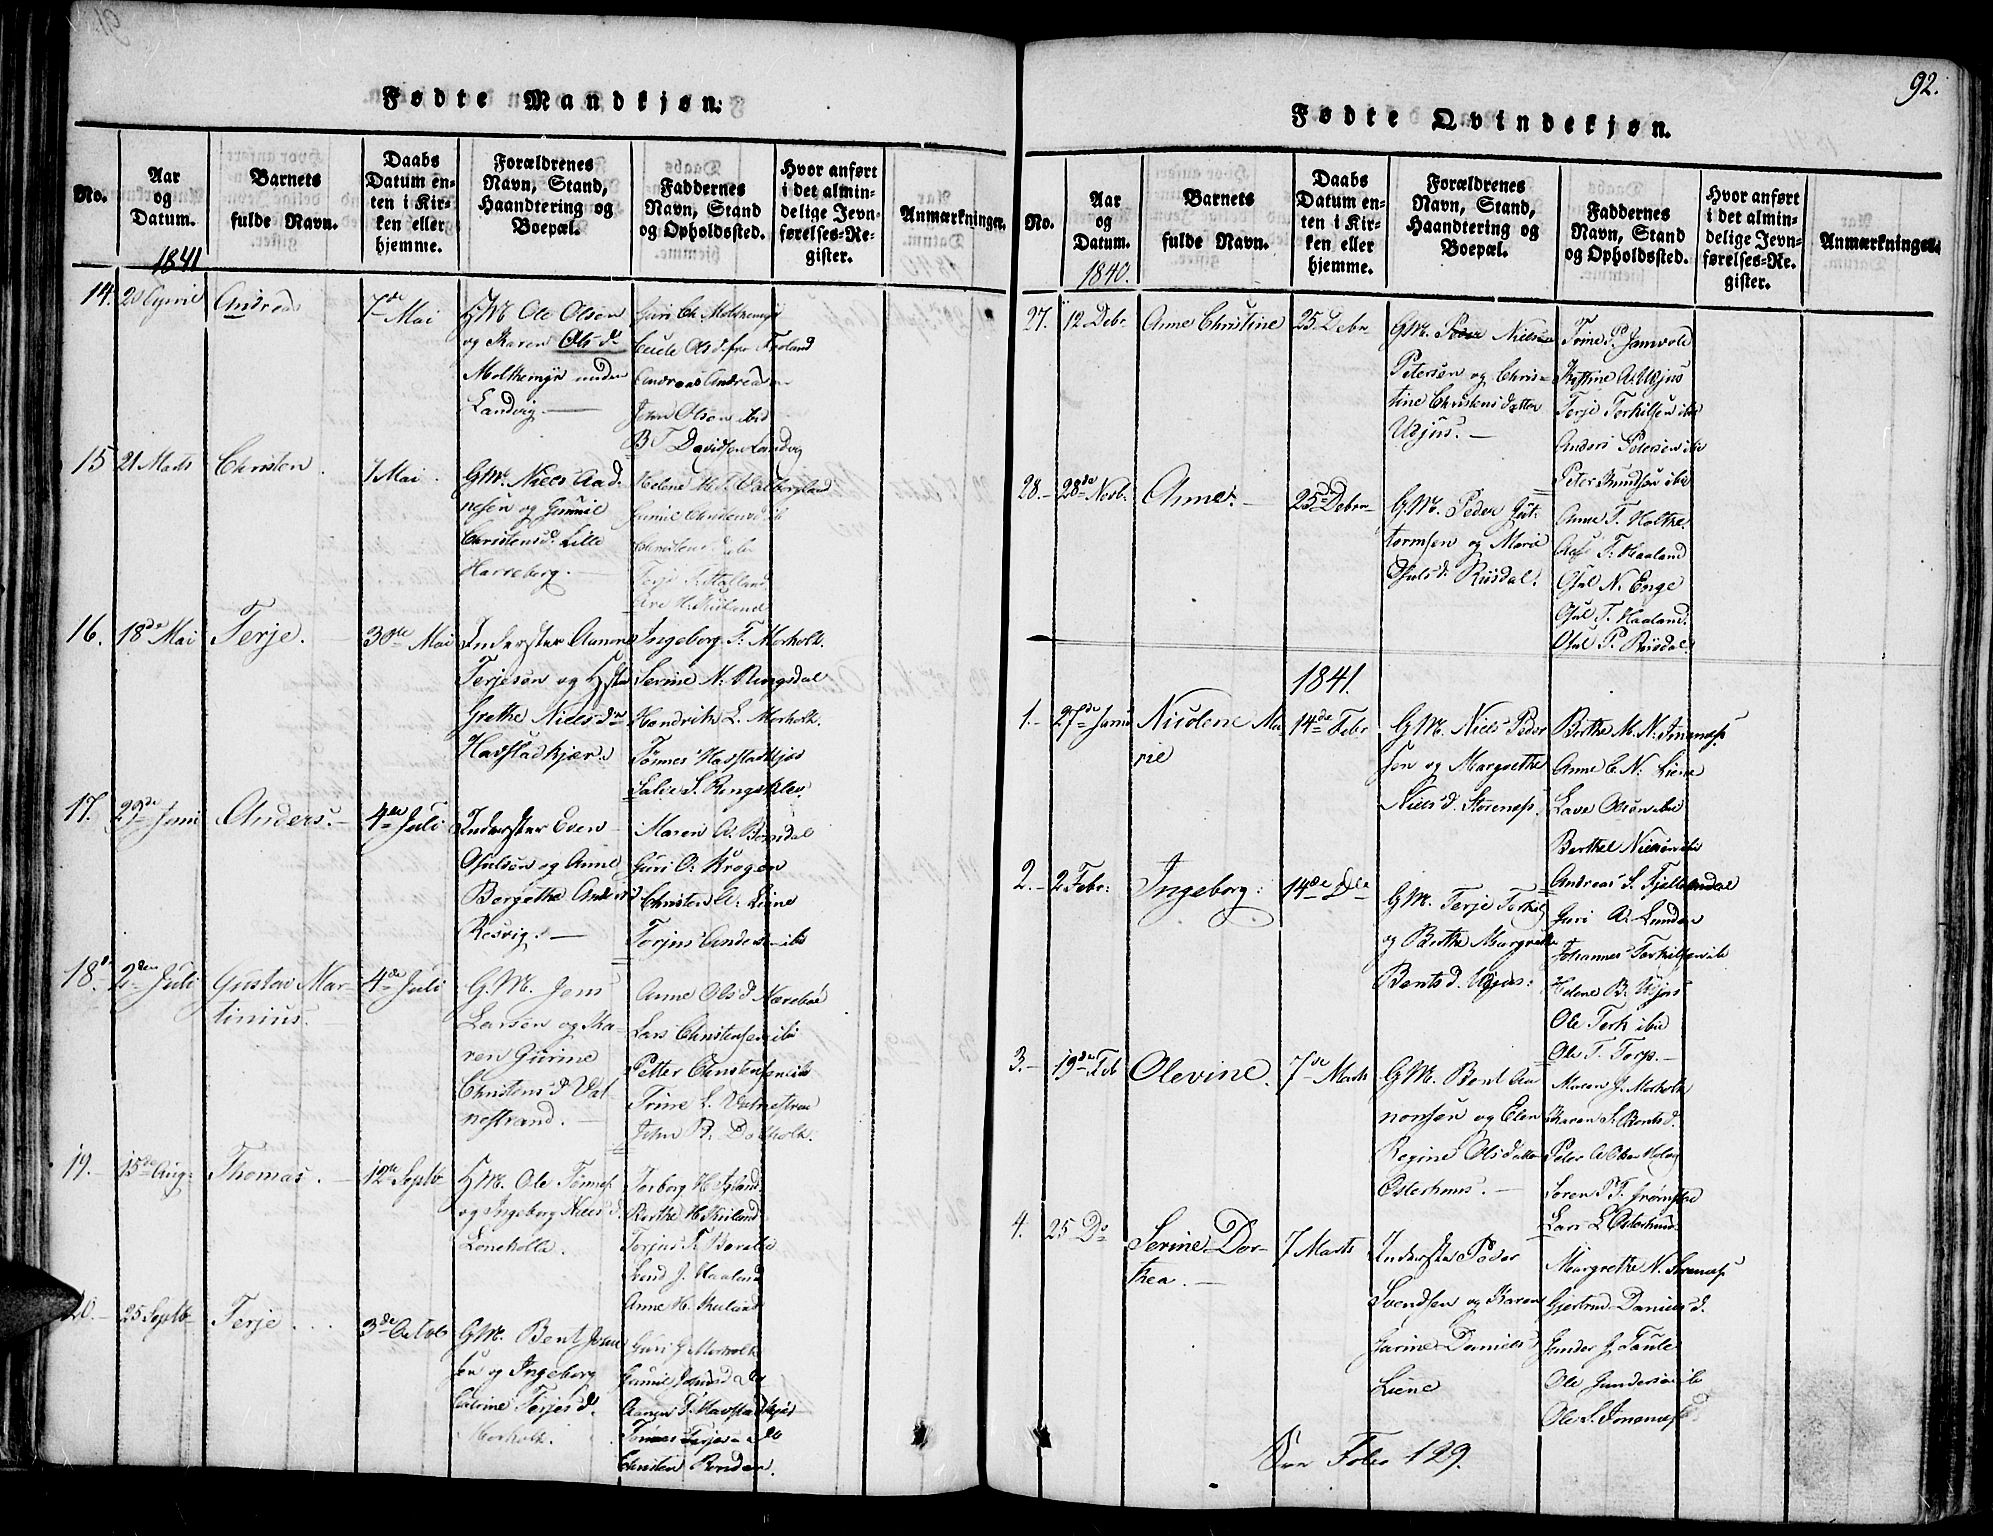 Fødte Mandkjøn.
No.
Aar og Datum.
Barnets fulde Navn.
Daabs Datum enten i Kirken eller hjemme.
Forældrenes Navn, Stand, Haandtering og Boepæl.
Faddernes Navn, Stand og Opholdssted.
Hvor anført i det almindelige Jevnførelses-Register.
Anmærkninger.
1841
14. 20 April Andreas 7de Mai
HM. Ole Olsen
og Karen Olsd.
Molkemyr under
Landvig.
Guri Ch. Molkemyr
Cecile Olsd. fra Froland
Andreas Andreasen
John Olsen ibd
B T Davidsen Landvig
15 21 Marts Christen. 7 Mai.
GM. Niels Aad-
nesen og Gunnil
Christensd. Lille
Harreberg.
Helene
Gunil
Christensd. ib
Terje
16. 18de Mai Terje. 30te Mai
Inderster Aanon
Terjesen og Hstr
Grethe Nielsd.
Havstadkjær.
Ingeborg T. Morholt.
Serine N. Ringsdal
Hendrik L. Morholt.
Tønnes Havstadkjær
Salve S. Ringsklev.
17. 29de Juni Anders. 4de Juli
Inderster Even
Osulsen og Anne
Bergethe Andersd
Resvig.
Maren A.
Guri O. Krogen
Christen A. Liene
Torjus Anders. ib
18. 2den Juli Gustav Mar-
tinius. 4de Juli
GM. Jens
Larsen og Ka-
ren Gurine
Christensd. Vat-
nestrand.
Anne Olsd. Nærebøe
Lars Christensen ib
Petter Christensen ib
Trine L. Vatnestran
John B. Dolholt.
19. 15de Aug: Thomas. 12te Septb
HM. Ole Tønnes.
og Ingeborg Nielsd.
Loneholla.
Torborg H.
Berthe H. Kuland
Torjus T.
Svend J. Haaland
Anne H. Kuland
20. 25 Septb Terje. 3de Octob
GM. Bent Jon-
sen og Ingeborg
Catrine Terjesd.
Morholt.
Guri G. Morholt
Gunnil
Aanon T. Havstadkjær
Tønnes Terjes. do
Christen
Fødte Qvindekjøn.
92.
No.
Aar og Datum.
Barnets fulde Navn.
Daabs Datum enten i Kirken eller hjemme.
Forældrenes Navn, Stand, Haandtering og Boepæl.
Faddernes Navn, Stand og Opholdssted.
Hvor anført i det almindelige Jevnførelses-Register.
Anmærkninger.
1840.
27. 12 Debr Anne Christine 25 Debr
GM. Peder Nielsen
Petersen og Chris-
tine Christensdatter
Usjus.
Kirstine A. Usjus
Terje Terkilsen ibd
Anders Petersen ibd
Peter Knudsen ibd
28. 28de Novb. Anne. 25de Debr
GM. Peder Gut-
tormsen og Marie
Osulsd. Riisdal.
Anne T. Holtke
Aase T. Haaland
Osul N. Enge
Osul T. Haaland.
Osul P. Riisdal.
1841.
1. 27de Janu Nicolene Ma-
rie 14de Febr
GM. Niels Peder
sen og Margrethe
Nielsd. Storenæs.
Berthe M. N.
Anne C. N. Liene
Lave Olsen ibd
Berthel Nielsen ib
Andreas S. Fjellandal
2. 2 Febr: Ingeborg: 14de De
GM. Terje Terkil
og Berthe Margrethe
Bentsd. Usjus:
Guri A. Lunden
Johannes Terkilsen ib
Helene B. Usjus
Ole Terk ibd
Ole T. Torp.
3. 19de Feb Olevine. 7de Marts
GM. Bent Aa-
nonsen og Elen
Regine Olsdatter
Osterhuus.
Maren J. Morholt
Karen S. Bentsd.
Peder A.
Søren P T. Grømstad
Lars L. Osterhuus
4. 25 Do Serine Dor-
thea. 7 Marts
Inderste Peder
Svendsen og Karen
Garine Daniels
Liene
Margrethe N. Storenæs
Gjertrud Danielsd.
Gunder G. Taule
Ole Gundersen ib
Ole S.
See Folio 129.